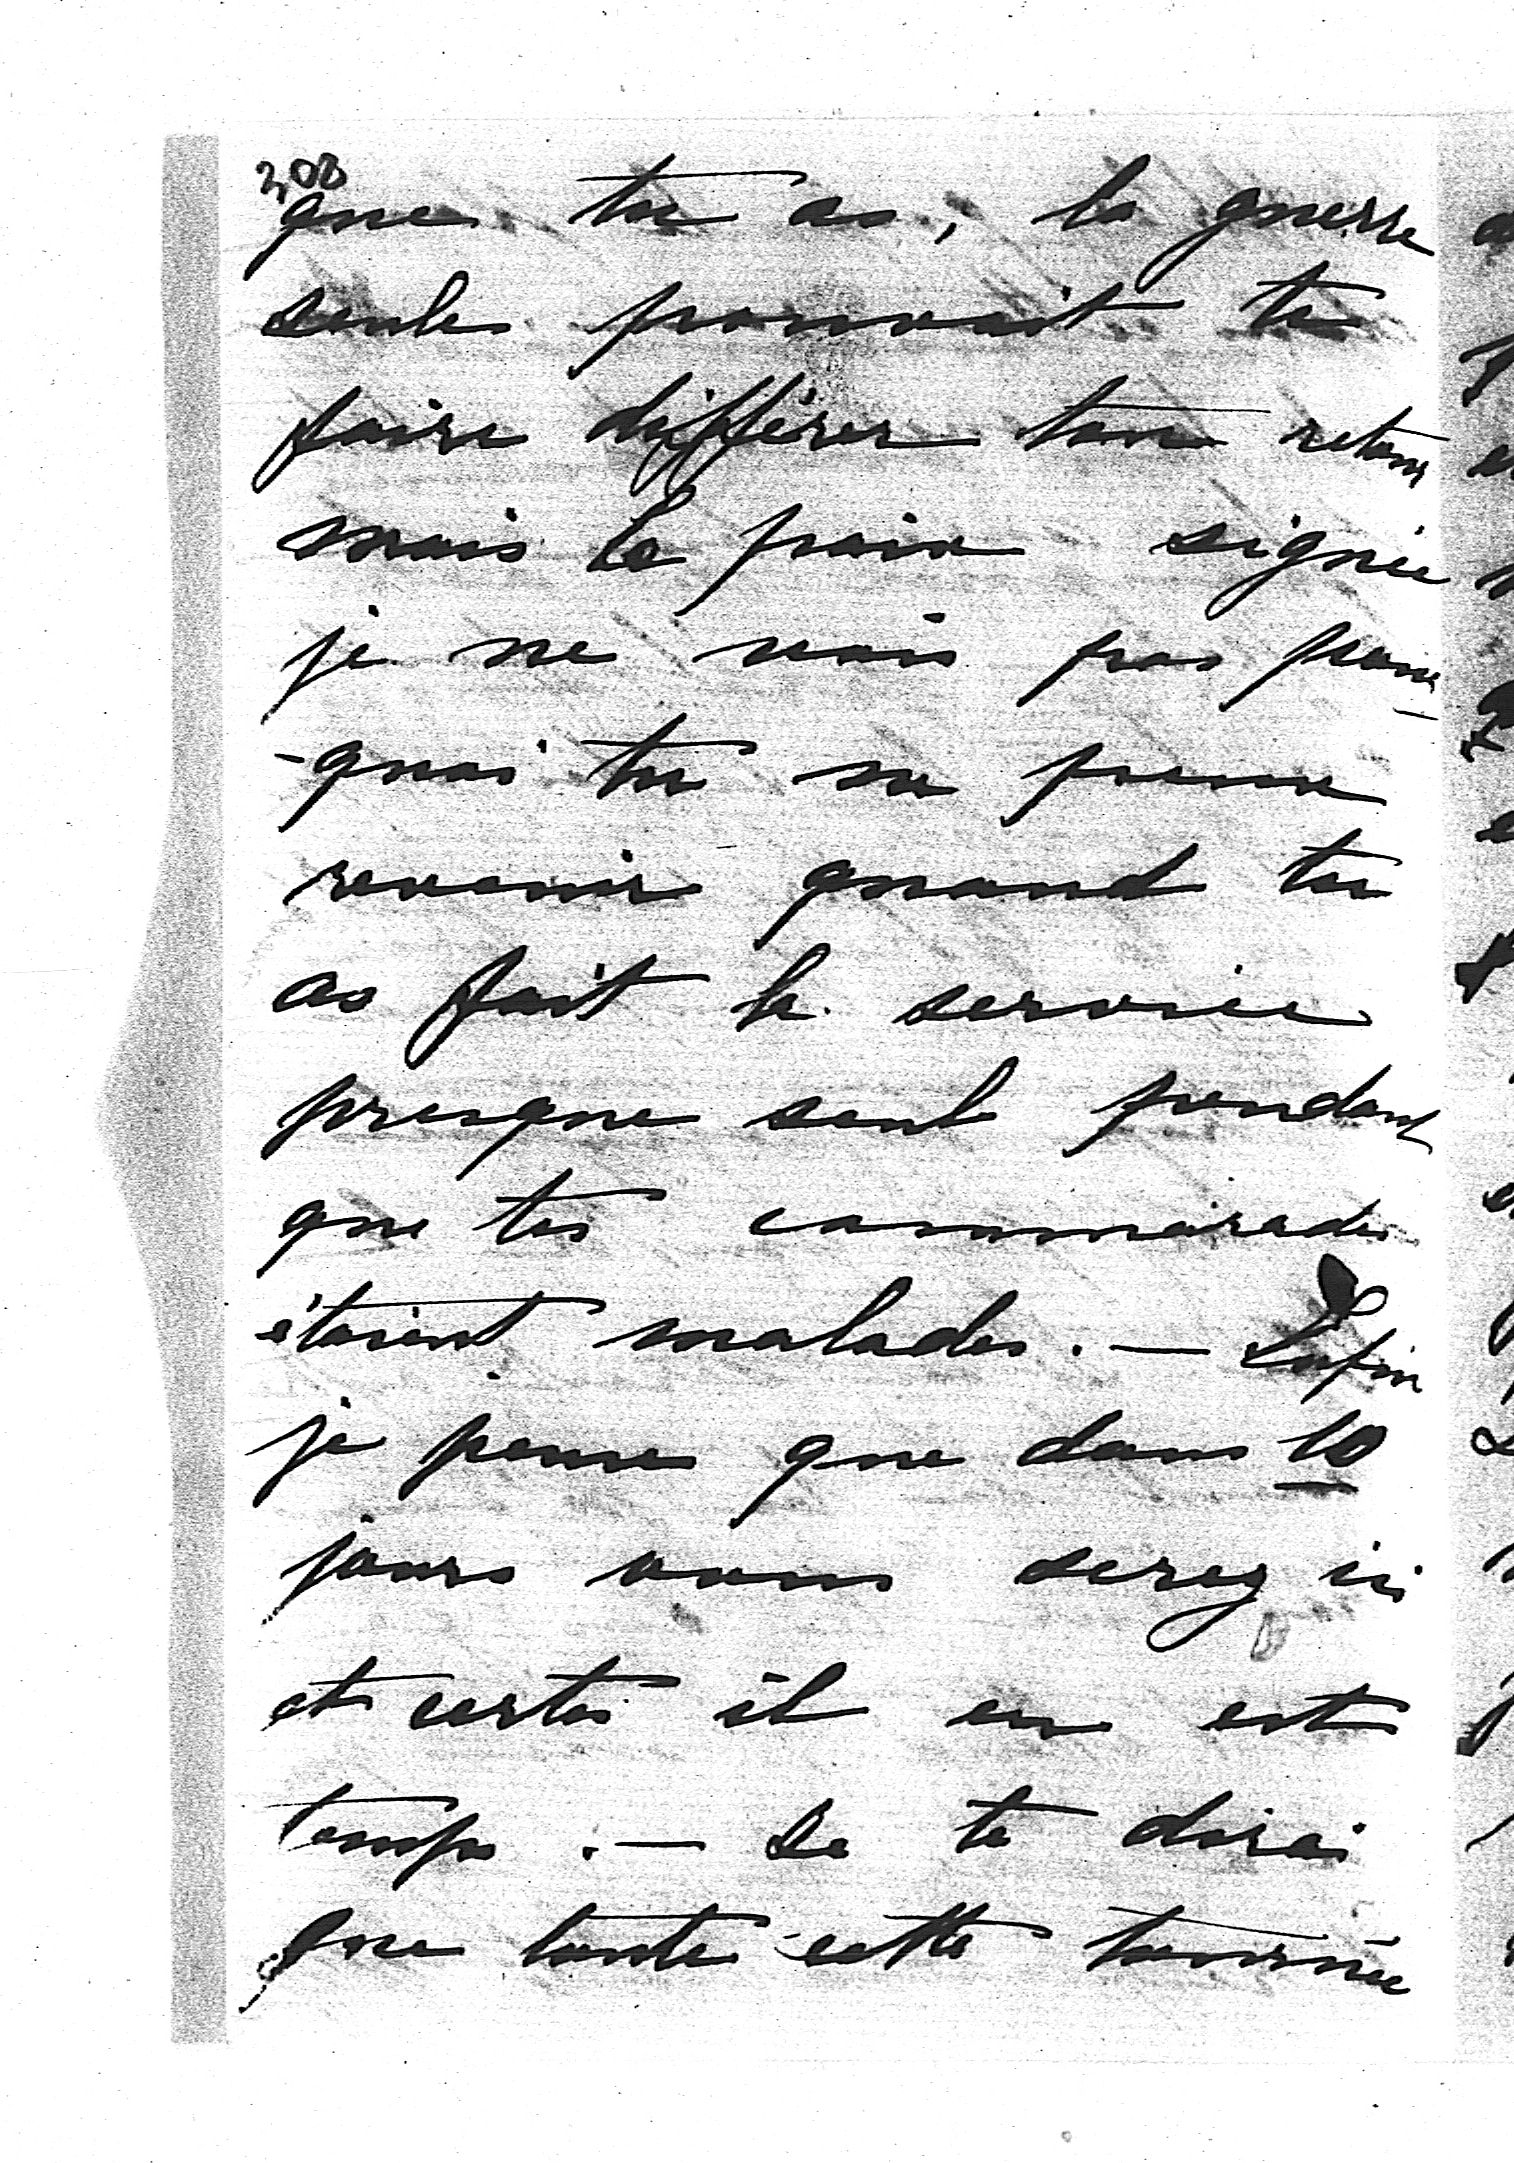 308
que tu as, la guerre
seule pouvait te
faire différer ton retour
mais la paix signée
je ne vois pas pour
-quoi tu ne peux
revenir quand tu
as fait le service
presque seul pendant
que tes cammarades
étaient malades. — Enfin
je pense que dans 10
jours vous serez ici
et certes il en est
temps. — Je te dirai
que toute cette tournée